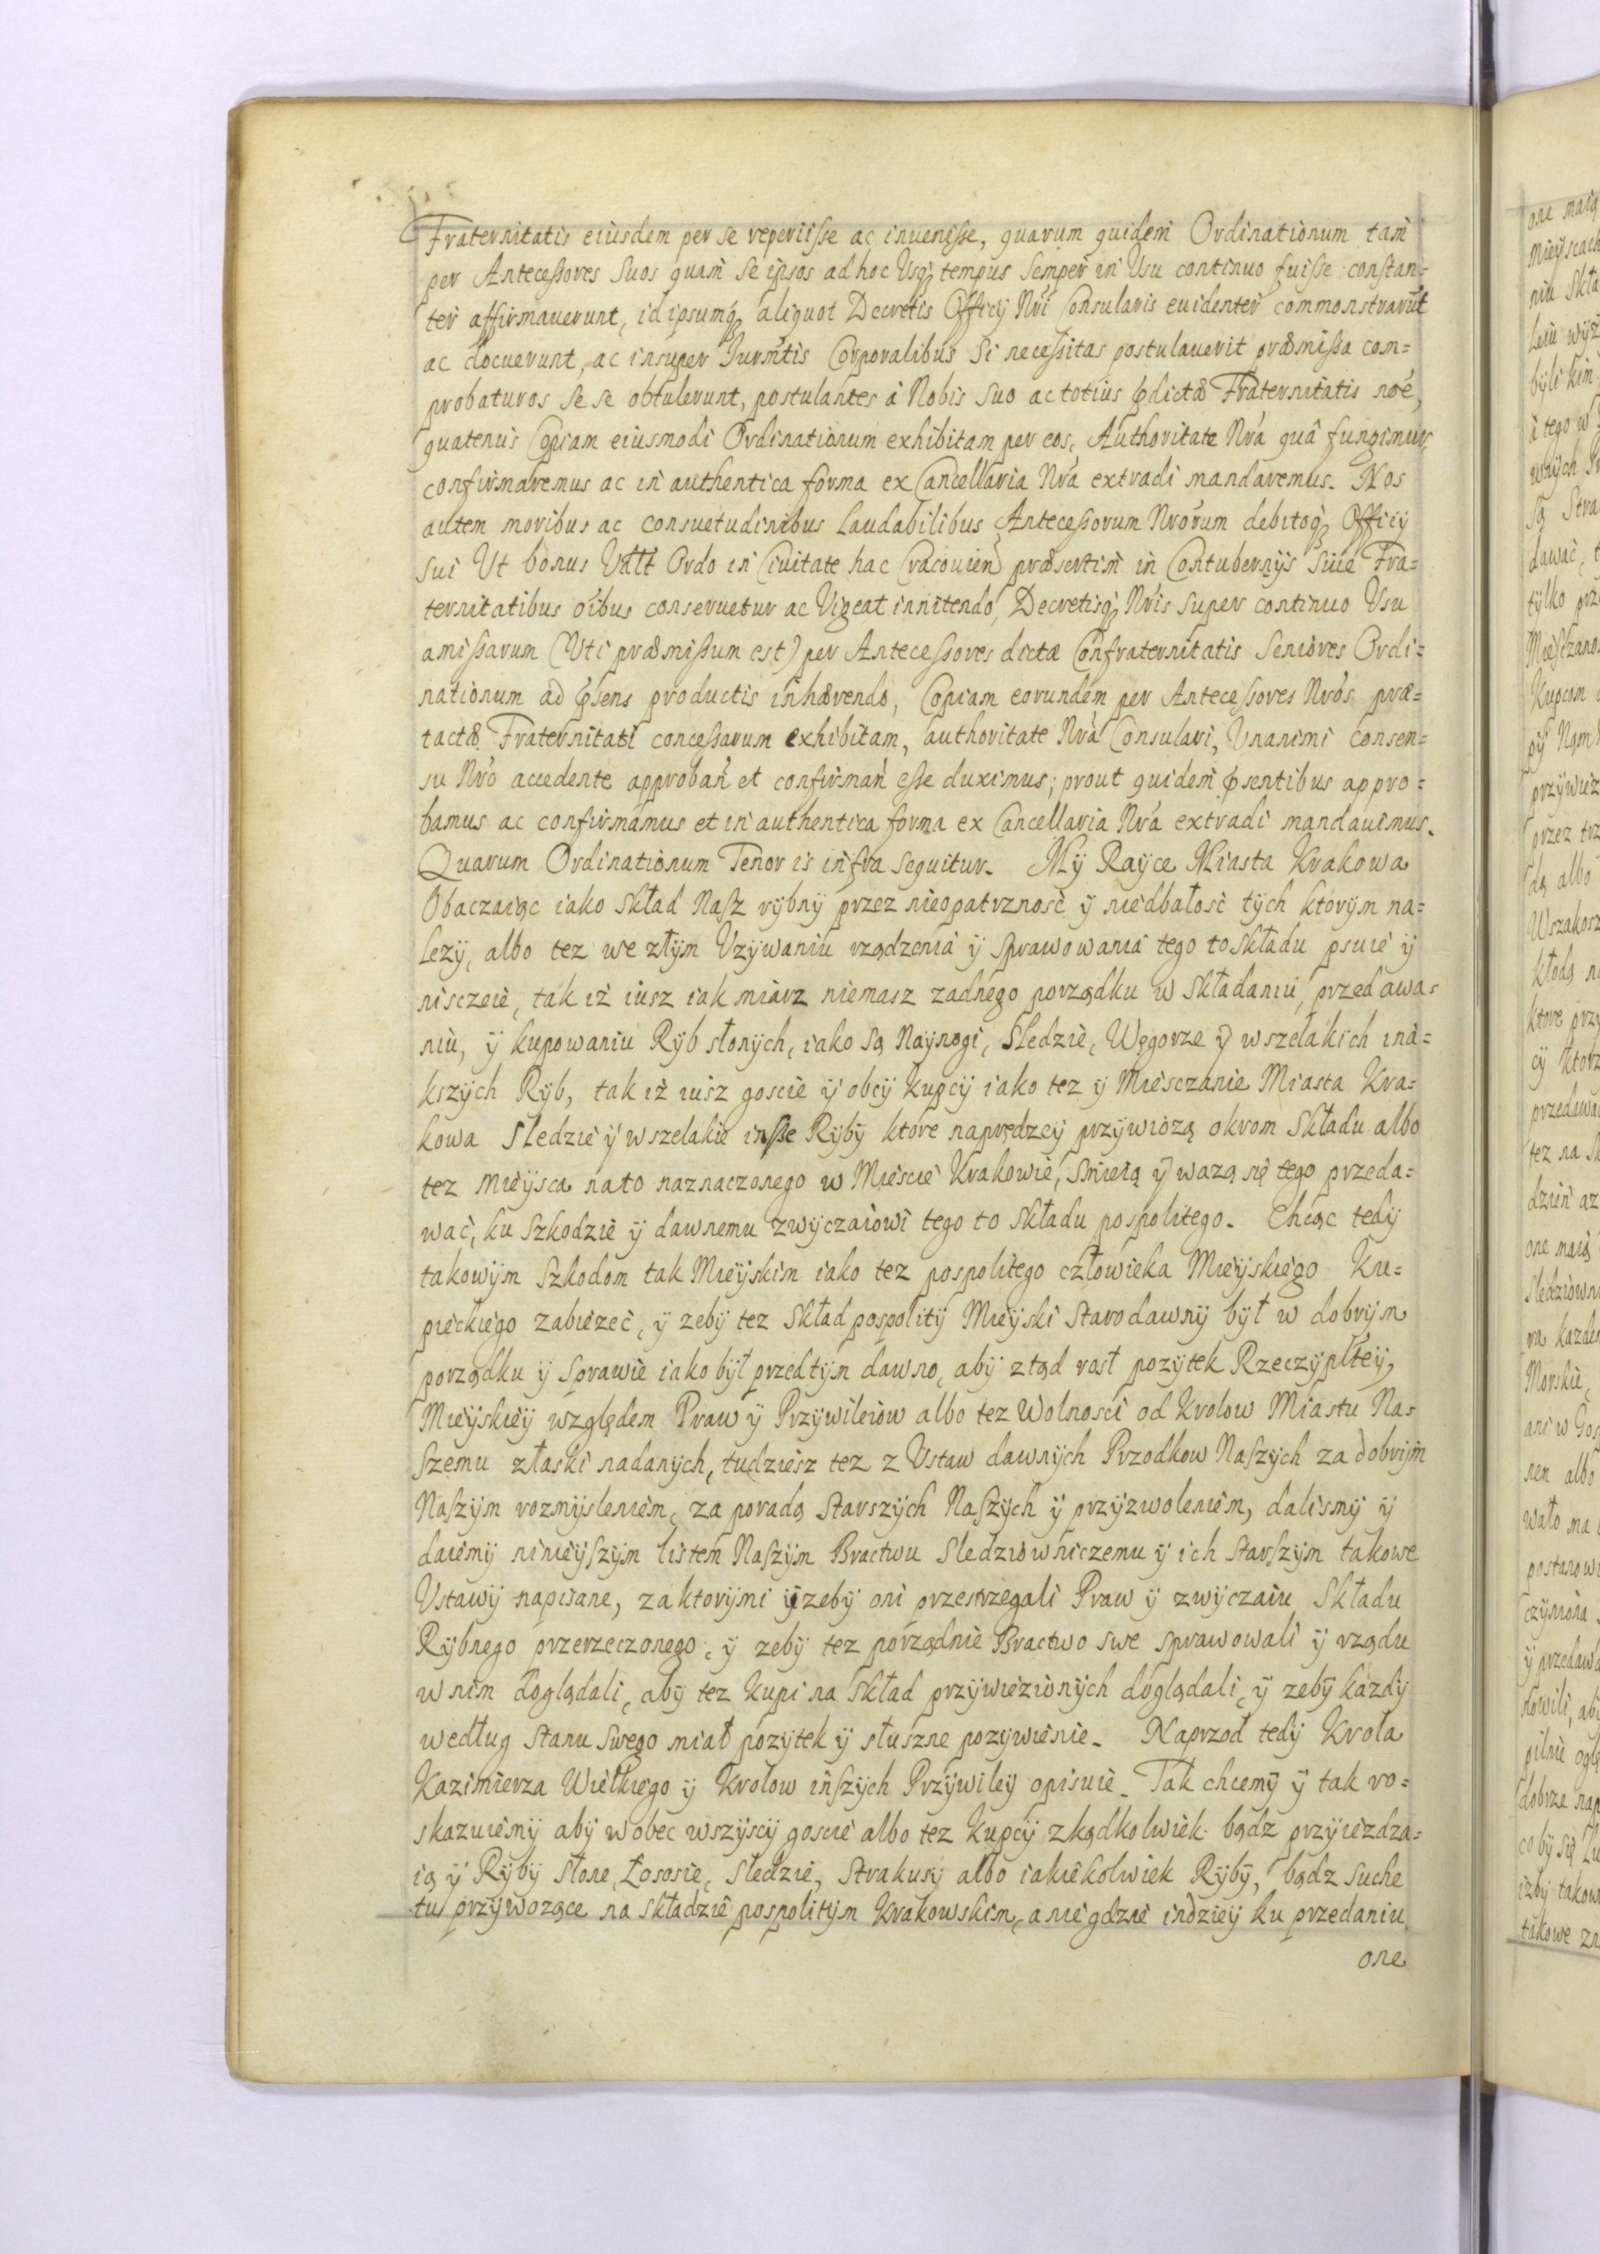 Fraternitatis eiusdem per se reperiisse ac inuenisse, quarum quidem Ordinationum tam
per Antecessores Suos quam se ipsos ad hoc Usq; tempus semper in Usu continuo fuisse constan=
ter affirmauerunt, id ipsumq; aliquot Decretis Officij Nri Consularis euidenter commonstrarūt
ac docuerunt, ac insuper Jurmtis Corporalibus Si necessitas postulauerit præmissa com=
probaturos se se obtulerunt, postulantes à Nobis Suo ac totius pdictæ Fraternitatis noe,
quatenus Copiam eiusmodi Ordinationum exhibitam per eos, Authoritate Nra quâ fungimur,
confirmaremus ac in authentica forma ex Cancellaria Nra extradi mandaremus. Nos
autem moribus ac consuetudinibus Laudabilibus Antecessorum Nrorum debitoq; Officij
sui Ut bonus Vtlt Ordo in Ciuitate hac Cracouien præsertim in Contubernijs Siue Fra=
ternitatibus oibus conseruetur ac Vigeat innitendo, Decretisq; Nris super continuo Usu
amissarum (Uti præmissum est) per Antecessores dictæ Confraternitatis Seniores Ordi=
nationum ad psens productis inhærendo, Copiam eorundem per Antecessores Nros præ=
tactæ Fraternitati concessarum exhibitam, authoritate Nra Consulari, Vnanimi consen=
su Nro accedente approban et confirman esse duximus; prout quidem psentibus appro=
bamus ac confirmamus et in authentica forma ex Cancellaria Nra extradi mandauimus.
Quarum Ordinationum Tenor is infra sequitur. My Rayce Miasta Krakowa
Obaczaiąc iako Skład Nasz rybny przez nieopatrznosć y niedbałosć tych ktorym na=
lezy, albo tez we złym Vzywaniu rządzenia y Sprawowania tego to Składu psuie y
nisczeie, tak iż iusz iak miarz niemasz zadnego porządku w Składaniu, przedawa=
niu, y kupowaniu Ryb słonych, iako są Naynogi, Sledzie, Węgorze y wszelakich ina=
kszych Ryb, tak iż iusz goscie y obcy kupcy iako tez y Miesczanie Miasta Kra=
kowa Sledzie y wszelakie insze Ryby ktore naprędzey przywiozą okrom Składu albo
tez mieysca na to naznaczonego w Miescie Krakowie, Smieią y wazą się tego przeda=
wać, ku Szkodzie y dawnemu zwyczaiowi tego to Składu pospolitego. Chcąc tedy
takowym Szkodom tak Mieyskim iako tez pospolitego człowieka Mieyskiego Ku=
pieckiego zabiezeć, y zeby tez Skład pospolity Mieyski Starodawny był w dobrym
porządku y Sprawie iako był przedtym dawno, aby ztąd rost pozytek Rzeczypltey,
Mieyskiey względem Praw y Przywileiow albo tez Wolnosci od Krolow Miastu Na=
szemu złaski nadanych, tudziesz tez z Vstaw dawnych Przodkow Naszych za dobrym
Naszym rozmysleniem, za poradą Starszych Naszych y przyzwoleniem, dalismy y
daiemy ninieyszym listem Naszym Bractwu Sledziowniczemu y ich Starszym takowe
Vstawy napisane, za ktorymi yzeby oni przestrzegali Praw y zwyczaiu Składu
Rybnego przerzeczonego, y zeby tez porządnie Bractwo swe sprawowali y rządu
w nim doglądali, aby tez kupi na Skład przywiezionych doglądali, y zeby kazdy
według Stanu Swego miał pozytek y słuszne pozywienie. Naprzod tedy Krola
Kazimierza Wielkiego y Krolow inszych Przywiley opisuie. Tak chcemy y tak ro=
skazuiemy aby wobec wszyscy goscie albo tez Kupcy zkądkolwiek bądz przyiezdza=
ią y Ryby Słone, Łososie, Sledzie, Strakusy albo iakiekolwiek Ryby, bądz suche
tu przywozące na Składzie pospolitym Krakowskim, a nie gdzie indziey ku przedaniu
one